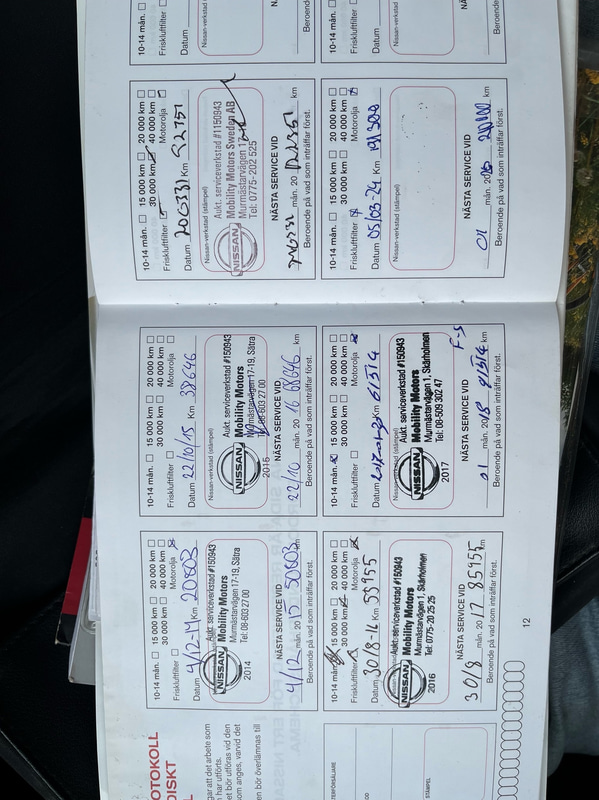 OTOKOLL
DISKT
L
gar att det arbete som
n har utförts.
et bör utföras vid den
som anges, varvid det
en bör överlämnas till
TERFÖRSÄLJARE
STÄMPEL
10-14 mån. 15 000 km 20 000 km
30 000 km 40 000 km
Friskluftfilter Motorolja
Datum 4/12-14 Km 20803
Aukt. serviceverkstad #150943
Mobility Motors
Murmästarvägen 17-19, Sätra
Tel: 08-603 27 00
NISSAN
2014
NÄSTA SERVICE VID
4/12 mån. 20 15 50803 km
Beroende på vad som inträffar först.
10-14 mån. 15 000 km 20 000 km
30 000 km 40 000 km
Friskluftfilter Motorolja
Datum 30/8-16 Km 55955
Aukt. serviceverkstad #150943
Mobility Motors
Murmästarvägen 1, Skärholmen
Tel: 0775-20 25 25
NISSAN
2016
NÄSTA SERVICE VID
30/8 mån. 20 17 85955 km
Beroende på vad som inträffar först.
12
10-14 mån. 15 000 km 20 000 km
30 000 km 40 000 km
Friskluftfilter Motorolja
Datum 22/10/15 Km 38646
Nissan-verkstad (stämpel)
Aukt. serviceverkstad #150943
Mobility Motors
Murmästarvägen 17-19, Sätra
Tel: 08-603 27 00
NISSAN
2015
NÄSTA SERVICE VID
22/10 mån. 20 16 68646 km
Beroende på vad som inträffar först.
10-14 mån. 15 000 km 20 000 km
30 000 km 40 000 km
Friskluftfilter Motorolja
Datum Km 61514
Nissan-verkstad (stämpel)
Aukt. serviceverkstad #150943
Mobility Motors
Murmästarvägen 1, Skärholmen
Tel: 08-509 302 47
NISSAN
2017
NÄSTA SERVICE VID F-S
01 mån. 20 18 91514 km
Beroende på vad som inträffar först.
10-14 mån. 15 000 km 20 000 km
30 000 km 40 000 km
Friskluftfilter Motorolja
Datum 200331 Km 92751
Nissan-verkstad (stämpel)
Aukt. serviceverkstad #1150943
Mobility Motors Sweden AB
Murmästarvägen
Tel: 0775- 202 525
NISSAN
NÄSTA SERVICE VID
mån. 20 km
Beroende på vad som inträffar först.
10-14 mån. 15 000 km 20 000 km
30 000 km 40 000 km
Friskluftfilter Motorolja
Datum 05/03-24 Km
Nissan-verkstad (stämpel)
NÄSTA SERVICE VID
01 mån. 20 km
Beroende på vad som inträffar först.
10-14 mån.
Friskluftfilter
Datum
Nissan-verkstad (stämpel)
NÄSTA
Beroende
10-14 mån.
Friskluftfilter
Datum
Nissan-verkstad (stämpel)
NÄS
Beroend